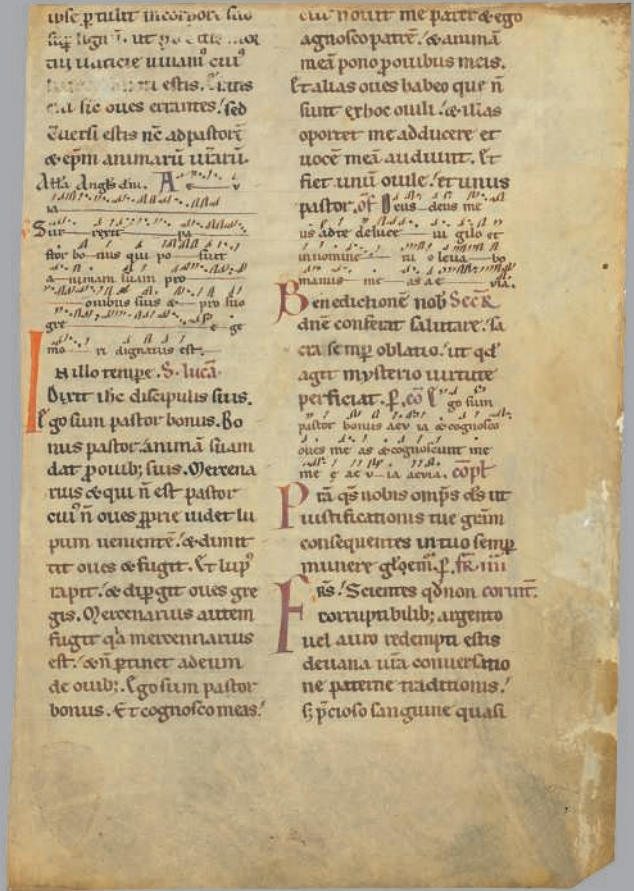 ipse ꝑtulit incorpore suo
sup̄ lignū. ut
tui
estis. Eratis
sic oues errantes. sed
ꝯuersi estis nc̄ adpastorē
& ep̄m animarū ur̄arū.
All̄a Angl̄s dn̄i. A
ia
Sur rexit pa
stor bo nus qui po suit
a nimam suam pro
ouibus suis & pro suo
gre e ge
mo ri dignatus est.
In illo tempr̄e. S. lucā.
Dixit ih̄c discipulis suis.
Ego sum pastor bonus. Bo
nus pastor animā suam
dat ꝓ ouib; suis. Mercena
rius & qui n̄ est pastor
cui᾽ n̄ oues ꝓprie uidet lu
pum uenientē. & dimit
tit oues & fugit. Et lup᾽
rapit. & disꝑgit oues gre
gis. Mercenarius autem
fugit q̄a mercennarius
est. & n̄ ꝑtinet adeum
de ouib; Ego sum pastor
bonus. Et cognosco meas.
me pater & ego
agnosco patrē. & animā
meā pono ꝓ ouibus meis.
Et alias oues habeo que n̄
sunt exhoc ouili. & illas
oportet me adducere et
uocē meā audiunt. Et
fiet unū ouile. et unus
pastor. of̄ Deus deus me
us adte deluce ui gilo et
innomine tu o leua bo
manus me as ae uia.
Benedictionē nob̄ Secr̄
dn̄e conferat salutarē. sa
cra semꝑ oblatio. ut qd̄
agit mysterio uirtute
perficiat. ꝑ. cō Ego sum
pastor bonus aeu ia & cognosco
oues me as & cognoscunt me
me e ae u ia aeuia. cōpl̄
Pr̄a qs̄ nobis omp̄s ds̄ ut
iustificationis tue grām
consequentes in tuo semꝑ
munere gl̄oem̄. ꝑ. fr̄. iiii
Fr̄s. Scientes qd̄ non
corruptibilib; argento
uel auro redempti estis
deuana ur̄a conuersatio
ne paterne traditionis.
s; p̄cioso sanguine quasi